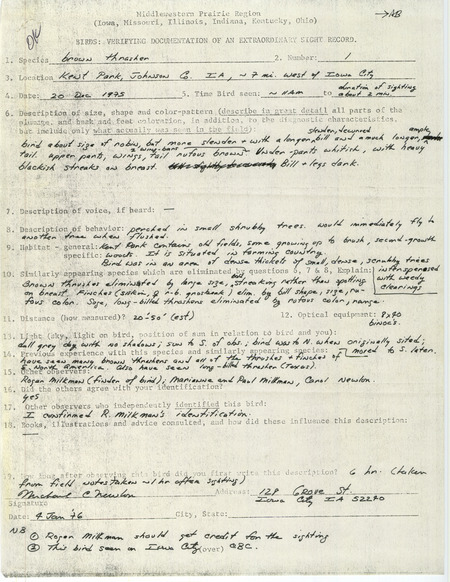 Middlewestern Prairie Region →AB
(Iowa, Missouri, Illinois, Indiana, Kentucky, Ohio)
OK
BIRDS: VERIFYING DOCUMENTATION OF AN EXTRAORDINARY SIGHT RECORD.
1. Species brown thrasher 2. Number: 1
3. Location Kent Park, Johnson Co. IA, ~7 mi. west of Iowa City
4. Date: 20 Dec 1975 5. Time Bird seen: ~11AM to duration of sighting about 2 min.
6. Description of size, shape and color-pattern (describe in great detail all parts of the
plumage, and beak and feet coloration, in addition to the diagnostic characteristics,
but include only what actually was seen in the field) slender, decurved
bird about size of robin, but more slender + with a longer bill and a much longer, ample
tail. upper parts, wings, tail rufous brown. 2 wing-bars Under-parts whitish, with heavy
blackish streaks on breast. Bill + legs dark.
7. Description of voice, if heard: —
8. Description of behavior: perched in small shrubby trees. would immediately fly to
another tree when flushed.
9. Habitat - general: Kent Park contains old fields, some growing up to brush, second-growth
specific: woods. It is situated in farming country.
Bird was in an area of dense thickets of small, dense, scrubby trees
interspersed with weedy clearings
10. Similarly appearing species which are eliminated by questions 6, 7 & 8, Explain:
Brown thrushes eliminated by large size, streaking rather than spotting
on breast. finches (such as ♀ r-b. grosbeak) elim. by bill shape, size, ru-
fous color. Sage, long-billed thrashers eliminated by rufous color, range.
11. Distance (how measured)? 20'-50' (est) 12. Optical equipment: 8x40
binocs.
13. Light (sky, light on bird, position of sun in relation to bird and you):
dull grey day with no shadows; sun to S. of obs; bird was to N. when originally sited;
moved to S. later.
14. Previous experience with this species and similarly appearing species:
have seen many brown thrashers and all of the thrushes + finches of
E. North America. Also have seen long-billed thrasher (Texas).
15. Other observers:
Roger Milkman (finder of bird); Marianne and Paul Milkman, Carol Newlon.
16. Did the others agree with your identification?
yes
17. Other observers who independently identified this bird:
I confirmed R. Milkman's identification.
18. Books, illustrations and advice consulted, and how did these influence this description:
—
19. How long after observing this bird did you first write this description? 6 hr. (taken
from field notes taken ~1 hr after sighting)
Michael C Newlon Address: 128 Grove St.
Signature Iowa City IA 52240
Date: 4 Jan '76 City, State:
NB ① Roger Milkman should get credit for the sighting
② This bird seen on Iowa City (over) CBC.